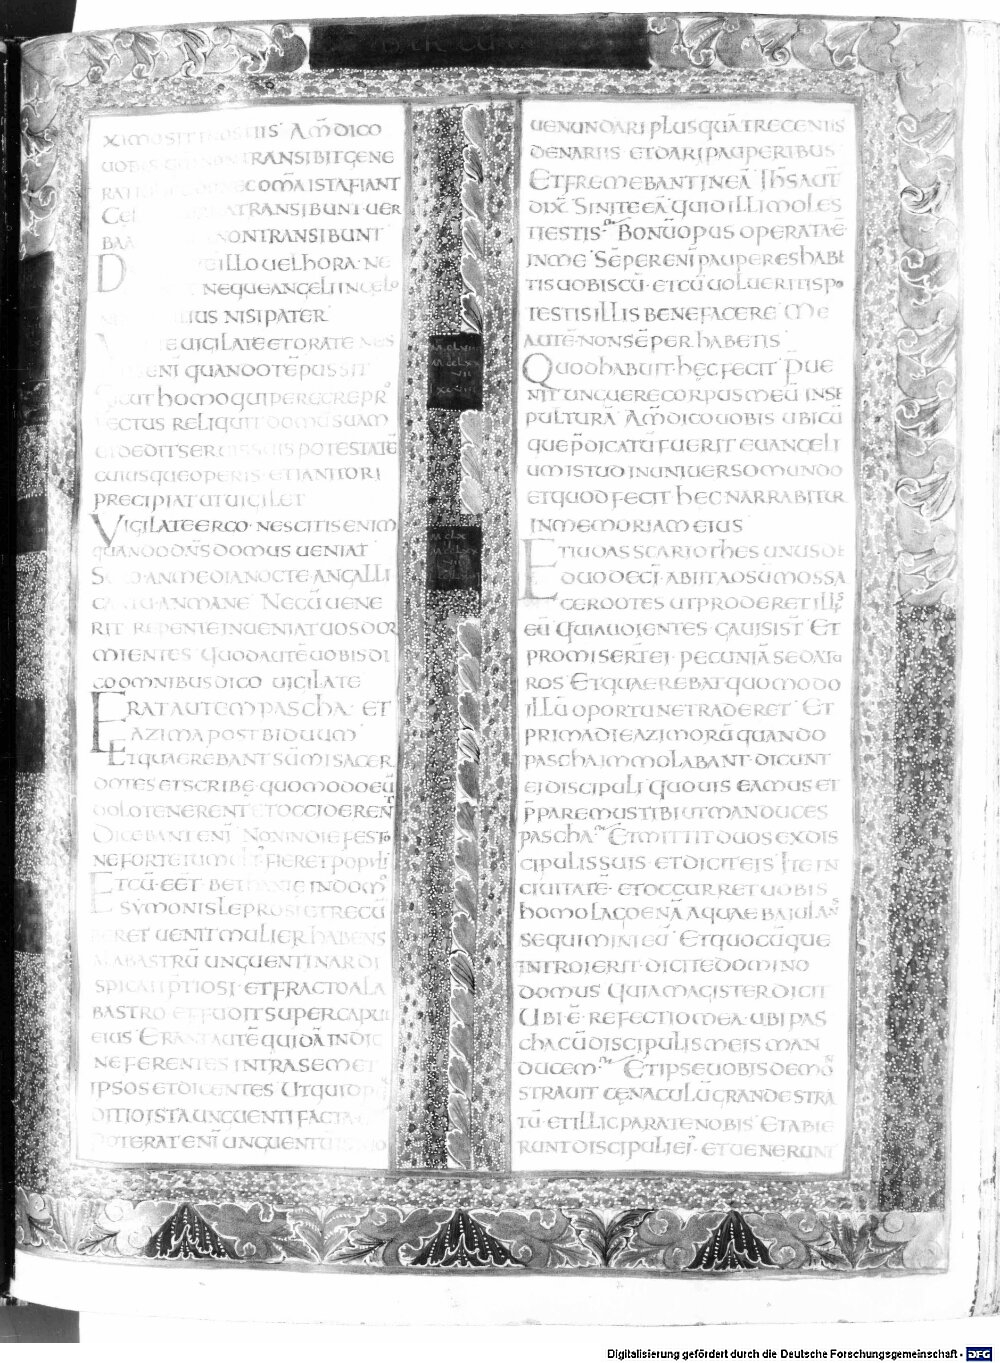 XIMO SIT IN OSTIIS AM̄ DICO
UOBIS TRANSIBIT GENE
OM̄A ISTA FIANT
TRANSIBUNT UER
BA NON TRANSIBUNT
D ILLO UEL HORA NE
NEQUE ANGELI IN CELO
NISI PATER
UIGILATE ET ORATE NES
ENĪ QUANDO TĒPUS SIT
SICUT HOMO QUI PEREGRE PR
FECTUS RELIQUIT DOMŪ SUAM
ET DEDIT SERUIS SUIS POTESTATĒ
CUIUSQUE OPERIS ET IANITORI
PRECIPIAT UT UIGILET
VIGILATE ERGO NESCITIS ENIM
QUANDO DN̄S DOMUS UENIAT
SERO AN MEDIA NOCTE AN GALLI
CANTU AN MANE NE CŪ UENE
RIT REPENTE INUENIAT UOS DOR
MIENTES QUOD AUTĒ UOBIS DI
CO OMNIBUS DICO UIGILATE
ERAT AUTEM PASCHA ET
AZIMA POST BIDUUM
ET QUAEREBANT SŪMI SACER
DOTES ET SCRIBĘ QUOMODO EŪ
DOLO TENERENT ET OCCIDERENT
DICEBANT ENĪ NON IN DIE FESTO
NE FORTE TUMULT FIERET POPULI
ET CŪ EĒT BETHANIE IN DOMO
SYMONIS LEPROSI ET RECŪ
BERET UENIT MULIER HABENS
ALABASTRŪ UNGUENTI NARDI
SPICATI P̄TIOSI ET FRACTO ALA
BASTRO EFFUDIT SUPER CAPUT
EIUS ERANT AUTĒ QUIDĀ INDIG
NE FERENTES INTRA SEMET
IPSOS ET DICENTES UT QUID P
DITIO ISTA UNGUENTI FACTA
POTERAT ENĪ UNGUENTŪ
UENUNDARI PLUS QUĀ TRECENTIS
DENARIIS ET DARI PAUPERIBUS
ET FREMEBANT IN EĀ IHS AUT̄
DIX̄ SINITE EĀ QUID ILLI MOLES
TI ESTIS BONŪ OPUS OPERATA Ē
IN ME SĒPER ENĪ PAUPERES HABE
TIS UOBISCŪ ET CŪ UOLUERITIS PO
TESTIS ILLIS BENEFACERE ME
AUTĒ NON SĒPER HABETIS
QUOD HABUIT HĘC FECIT P̄UE
NIT UNGUERE CORPUS MEŪ IN SE
PULTURĀ AM̄ DICO UOBIS UBICŪ
QUE P̄DICATŪ FUERIT EUANGELI
UM ISTUD IN UNIUERSO MUNDO
ET QUOD FECIT HEC NARRABITUR
IN MEMORIAM EIUS
ET IUDAS SCARIOTHES UNUS DE
DUODECĪ ABIIT AD SŪMOS SA
CERDOTES UT PRODERET ILLIS
EŪ QUI AUDIENTES GAUISI ST̄ ET
PROMISERT̄ EI PECUNIĀ SE DATU
ROS ET QUAEREBAT QUOMODO
ILLŪ OPORTUNE TRADERET ET
PRIMA DIE AZIMORŪ QUANDO
PASCHA IMMOLABANT DICUNT
EI DISCIPULI QUO UIS EAMUS ET
P̄PAREMUS TIBI UT MANDUCES
PASCHA ET MITTIT DUOS EX DIS
CIPULIS SUIS ET DICIT EIS ITE IN
CIUITATĒ ET OCCURRET UOBIS
HOMO LAGOENĀ AQUAE BAIULANS
SEQUIMINI EŪ ET QUOCŪQUE
INTROIERIT DICITE DOMINO
DOMUS QUIA MAGISTER DICIT
UBI Ē REFECTIO MEA UBI PAS
CHA CŪ DISCIPULIS MEIS MAN
DUCEM ET IPSE UOBIS DEMO
STRAUIT CĘNACULŪ GRANDE STRA
TŪ ET ILLIC PARATE NOBIS ET ABIE
RUNT DISCIPULI EI ET UENERUNT
Digitalisierung gefördert durch die Deutsche Forschungsgemeinschaft - DFG